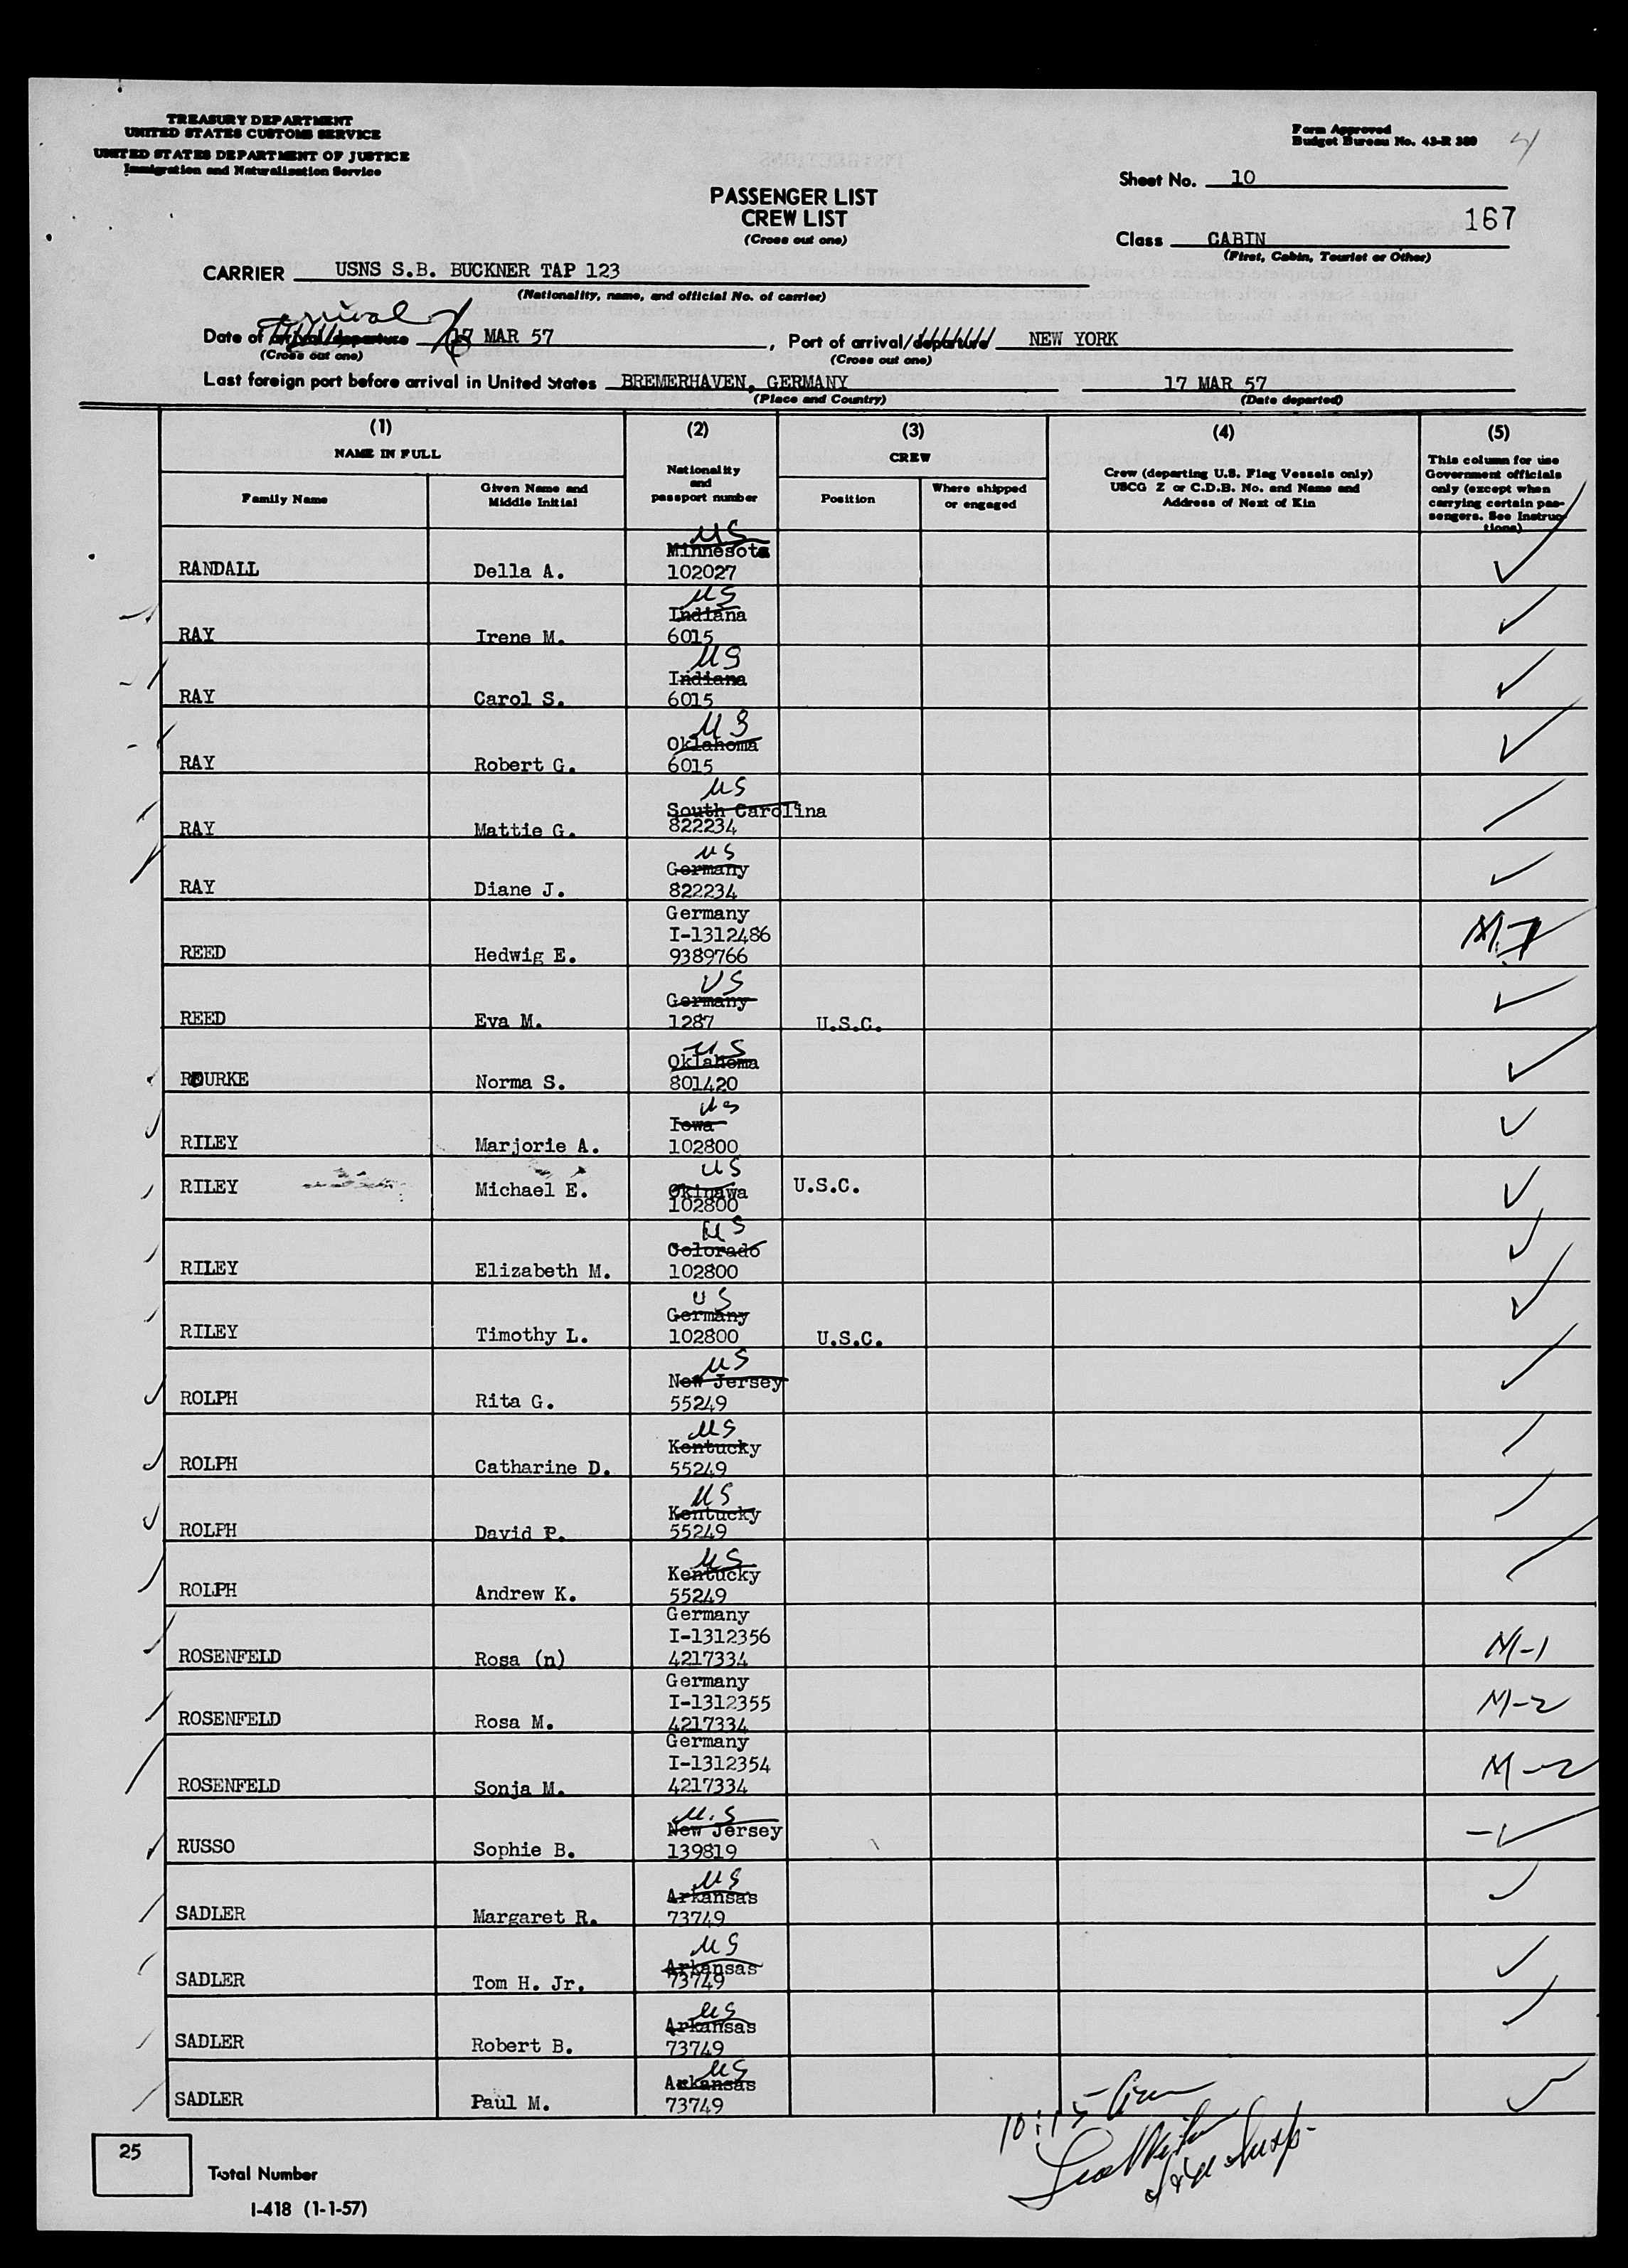 TREASURY DEPARTMENT
UNITED STATES CUSTOMS SERVICE
UNITED STATES DEPARTMENT OF JUSTICE
Immigration and Naturalization Service
Form Approved
Budget Bureau No. 43-R 380
4
Sheet No. 10
PASSENGER LIST
CREW LIST
(Cross out one)
167
Class CABIN
(First, Cabin, Tourist or Other)
CARRIER USNS S.B. BUCKNER TAP 123
(Nationality, name, and official No. of carrier)
arrival
Date of arrival/departure 17 MAR 57, Port of arrival/departure NEW YORK
(Cross out one) (Cross out one)
Last foreign port before arrival in United States BREMERHAVEN, GERMANY 17 MAR 57
(Place and Country) (Date departed)
(1) (2) (3) (4) (5)
NAME IN FULL
Family Name
Given Name and
Middle Initial
Nationality
and
passport number
CREW
Position
Where shipped
or engaged
Crew (departing U.S. Flag Vessels only)
USCG Z or C.D.B. No. and Name and
Address of Next of Kin
This column for use
Government officials
only (except when
carrying certain pas-
sengers. See Instruc-
tions)
US
Minnesota
RANDALL Della A. 102027
US
Indiana
RAY Irene M. 6015
US
Indiana
RAY Carol S. 6015
US
Oklahoma
RAY Robert G. 6015
US
South Carolina
RAY Mattie G. 822234
US
Germany
RAY Diane J. 822234
Germany
I-1312486
REED Hedwig E. 9389766
US
Germany
REED Eva M. 1287 U.S.C.
US
Oklahoma
ROURKE Norma S. 801420
US
Iowa
RILEY Marjorie A. 102800
US
RILEY Michael E. Okinawa U.S.C.
102800
US
Colorado
RILEY Elizabeth M. 102800
US
Germany
RILEY Timothy L. 102800 U.S.C.
US
New Jersey
ROLPH Rita G. 55249
US
Kentucky
ROLPH Catharine D. 55249
US
Kentucky
ROLPH David P. 55249
US
Kentucky
ROLPH Andrew K. 55249
Germany
I-1312356
ROSENFELD Rosa (n) 4217334 M-1
Germany
I-1312355
ROSENFELD Rosa M. 4217334 M-2
Germany
I-1312354
ROSENFELD Sonja M. 4217334 M-2
U.S
New Jersey
RUSSO Sophie B. 139819
US
Arkansas
SADLER Margaret R. 73749
US
Arkansas
SADLER Tom H. Jr. 73749
US
Arkansas
SADLER Robert B. 73749
US
Arkansas
SADLER Paul M. 73749
10:15
25
Total Number
I-418 (1-1-57)